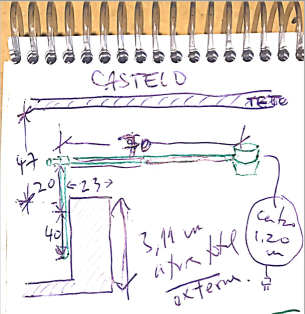 CASTELO
TETO
70
47
20
23
40
3,11 m
altura total
externa.
Centro
1,20
m